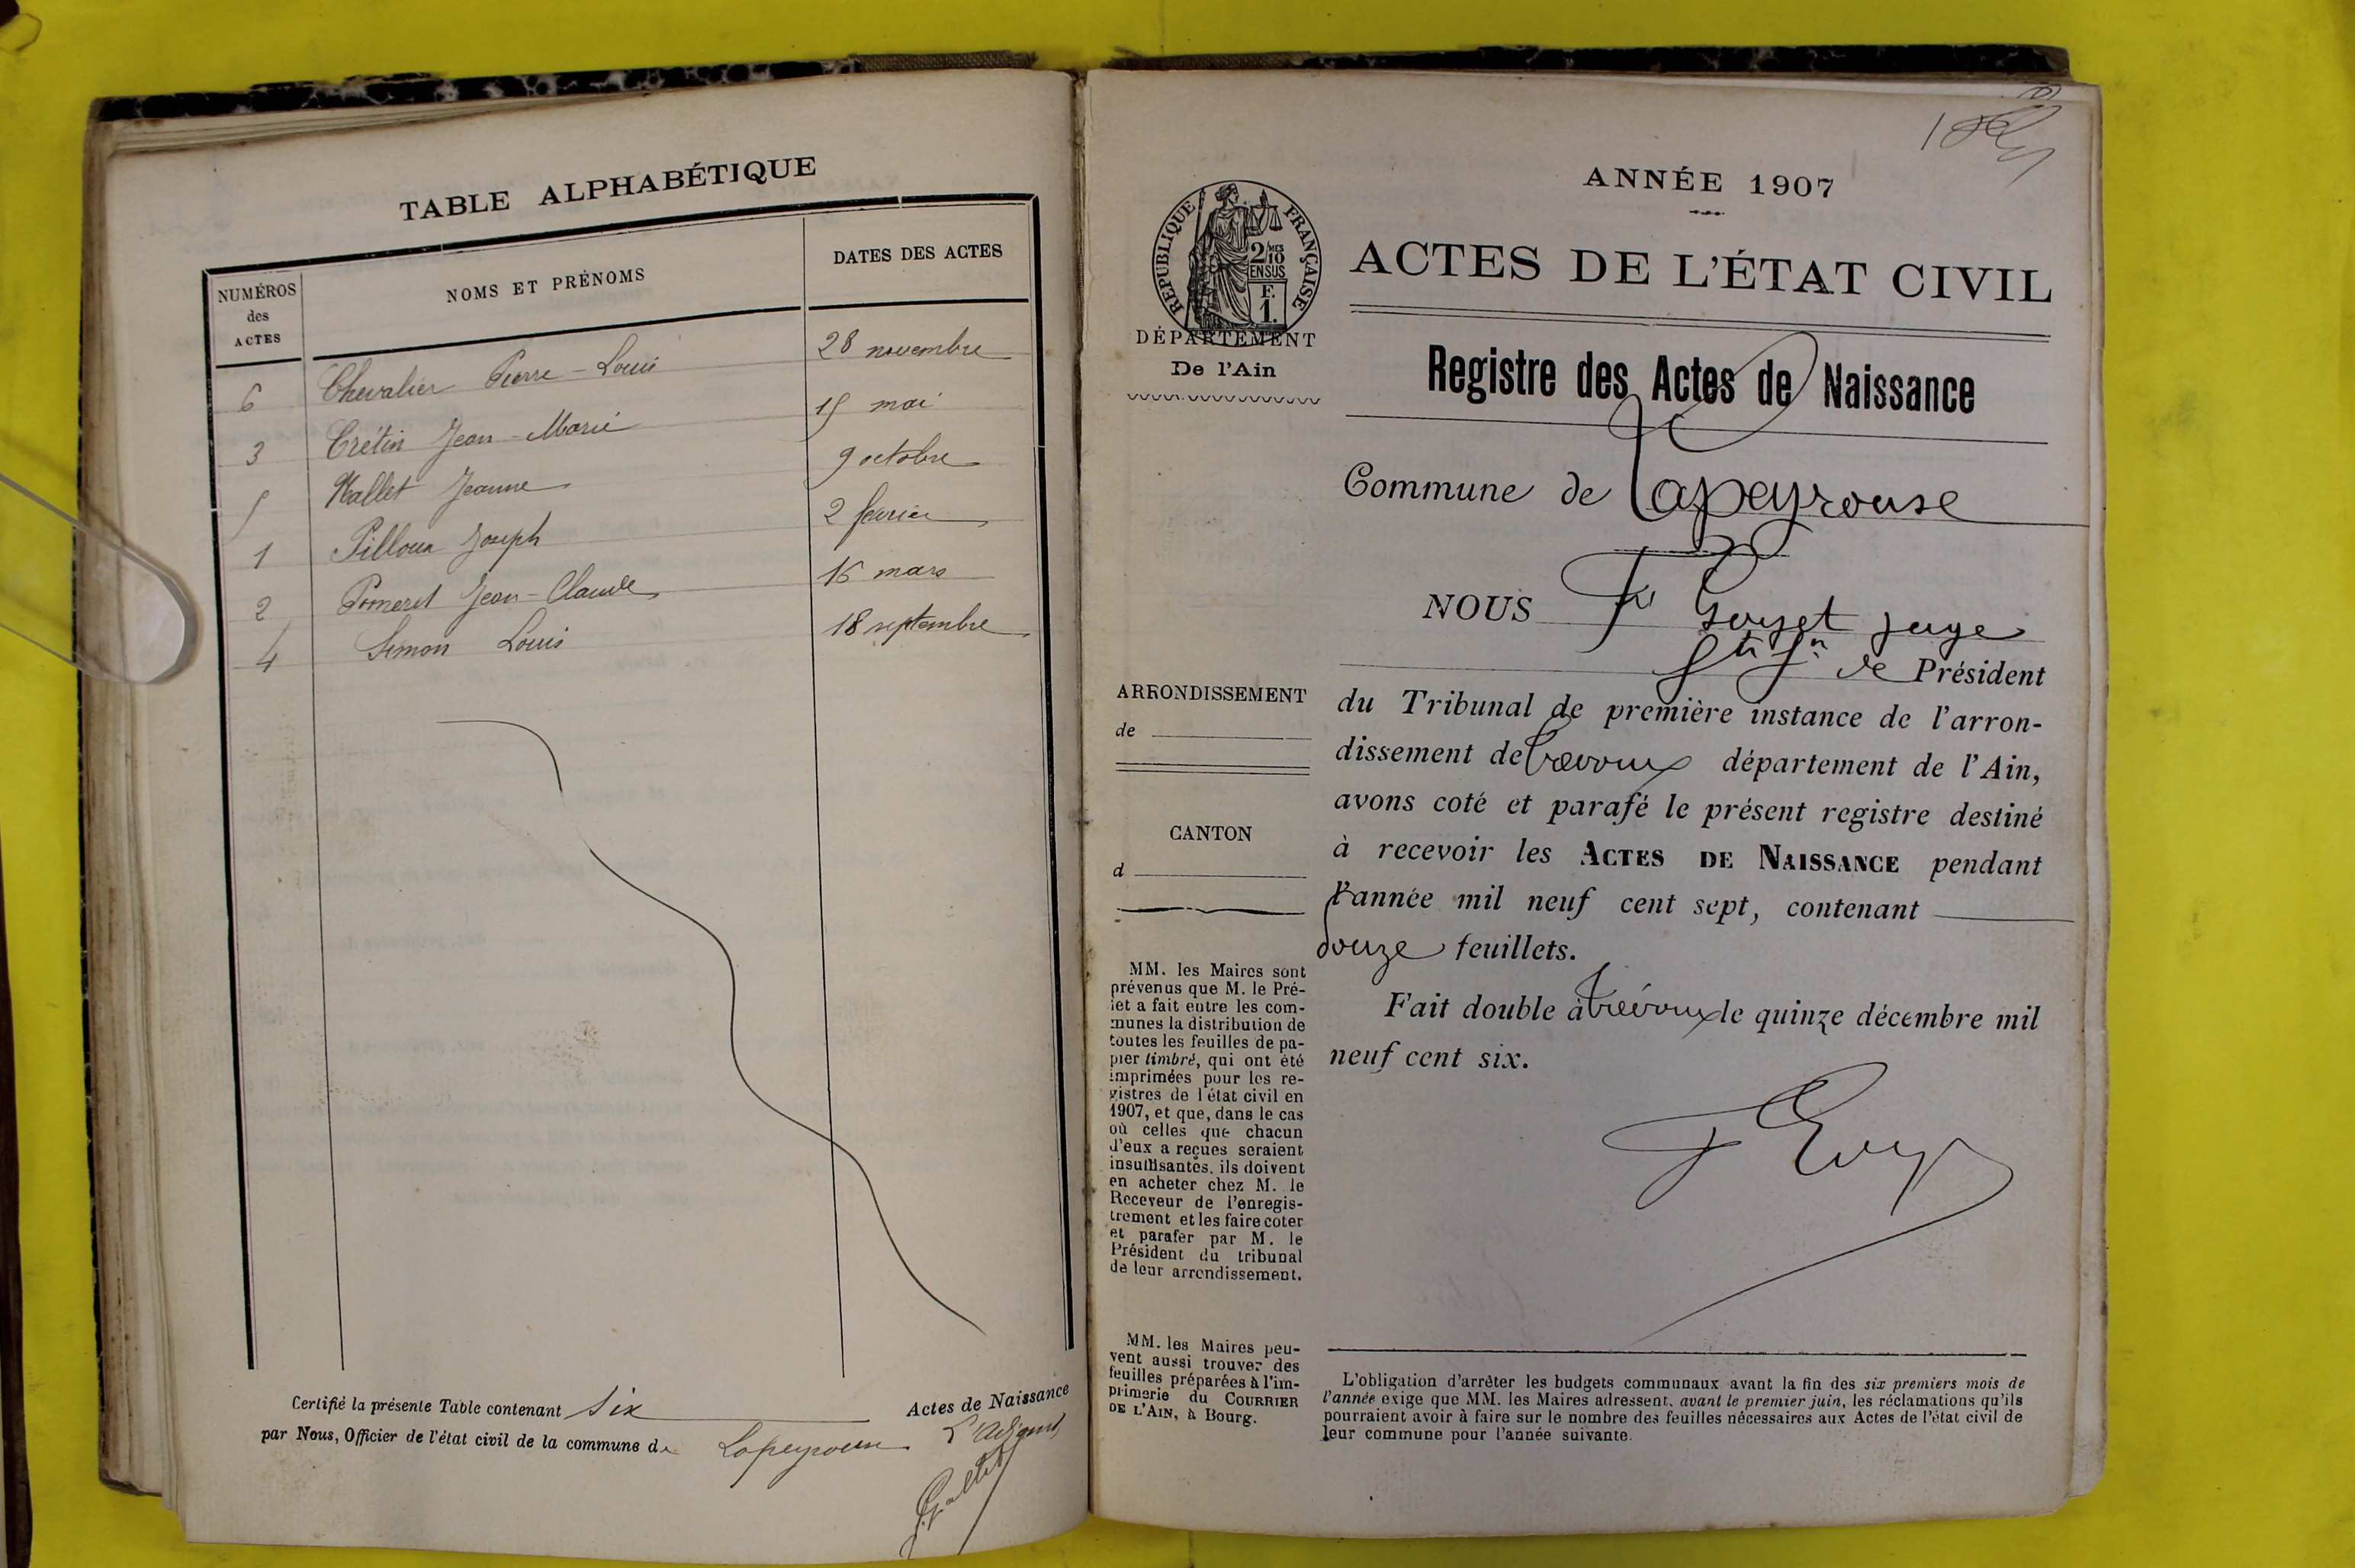 TABLE ALPHABÉTIQUE
NUMÉROS des ACTES
NOMS ET PRÉNOMS
DATES DES ACTES
6 Chevalier Pierre-Louis 28 novembre
3 Crétin Jean-Marie 15 mai
5 Hallet Jeanne 9 octobre
1 Pilloux Joseph 2 février
2 Pomeret Jean-Claude 16 mars
4 Simon Louis 18 septembre
Certifié la présente Table contenant six Actes de Naissance
par Nous, Officier de l'état civil de la commune de Lapeyrouse
L'adjoint
ANNÉE 1907
RÉPUBLIQUE FRANÇAISE
2/10
MES
EN SUS
F.
1.
ACTES DE L'ÉTAT CIVIL
DÉPARTEMENT
De l'Ain
Registre des Actes de Naissance
Commune de Lapeyrouse
NOUS juge
de Président
du Tribunal de première instance de l'arron-
dissement de Trévoux département de l'Ain,
avons coté et parafé le présent registre destiné
à recevoir les ACTES DE NAISSANCE pendant
l'année mil neuf cent sept, contenant
douze feuillets.
Fait double à Trévoux le quinze décembre mil
neuf cent six.
ARRONDISSEMENT
de
CANTON
d
MM. les Maires sont
prévenus que M. le Pré-
fet a fait entre les com-
munes la distribution de
toutes les feuilles de pa-
pier timbré, qui ont été
imprimées pour les re-
gistres de l'état civil en
1907, et que, dans le cas
où celles que chacun
d'eux a reçues seraient
insuffisantes, ils doivent
en acheter chez M. le
Receveur de l'enregis-
trement et les faire coter
et parafer par M. le
Président du tribunal
de leur arrondissement.
MM. les Maires peu-
vent aussi trouver des
feuilles préparées à l'im-
primerie du COURRIER
DE L'AIN, à Bourg.
L'obligation d'arrêter les budgets communaux avant la fin des six premiers mois de
l'année exige que MM. les Maires adressent, avant le premier juin, les réclamations qu'ils
pourraient avoir à faire sur le nombre des feuilles nécessaires aux Actes de l'état civil de
leur commune pour l'année suivante.